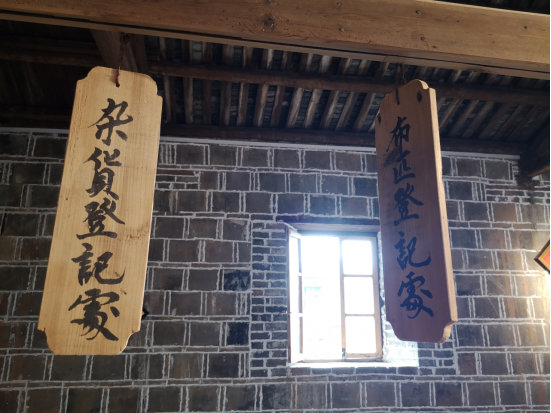 杂貨登記處
布匹登記處